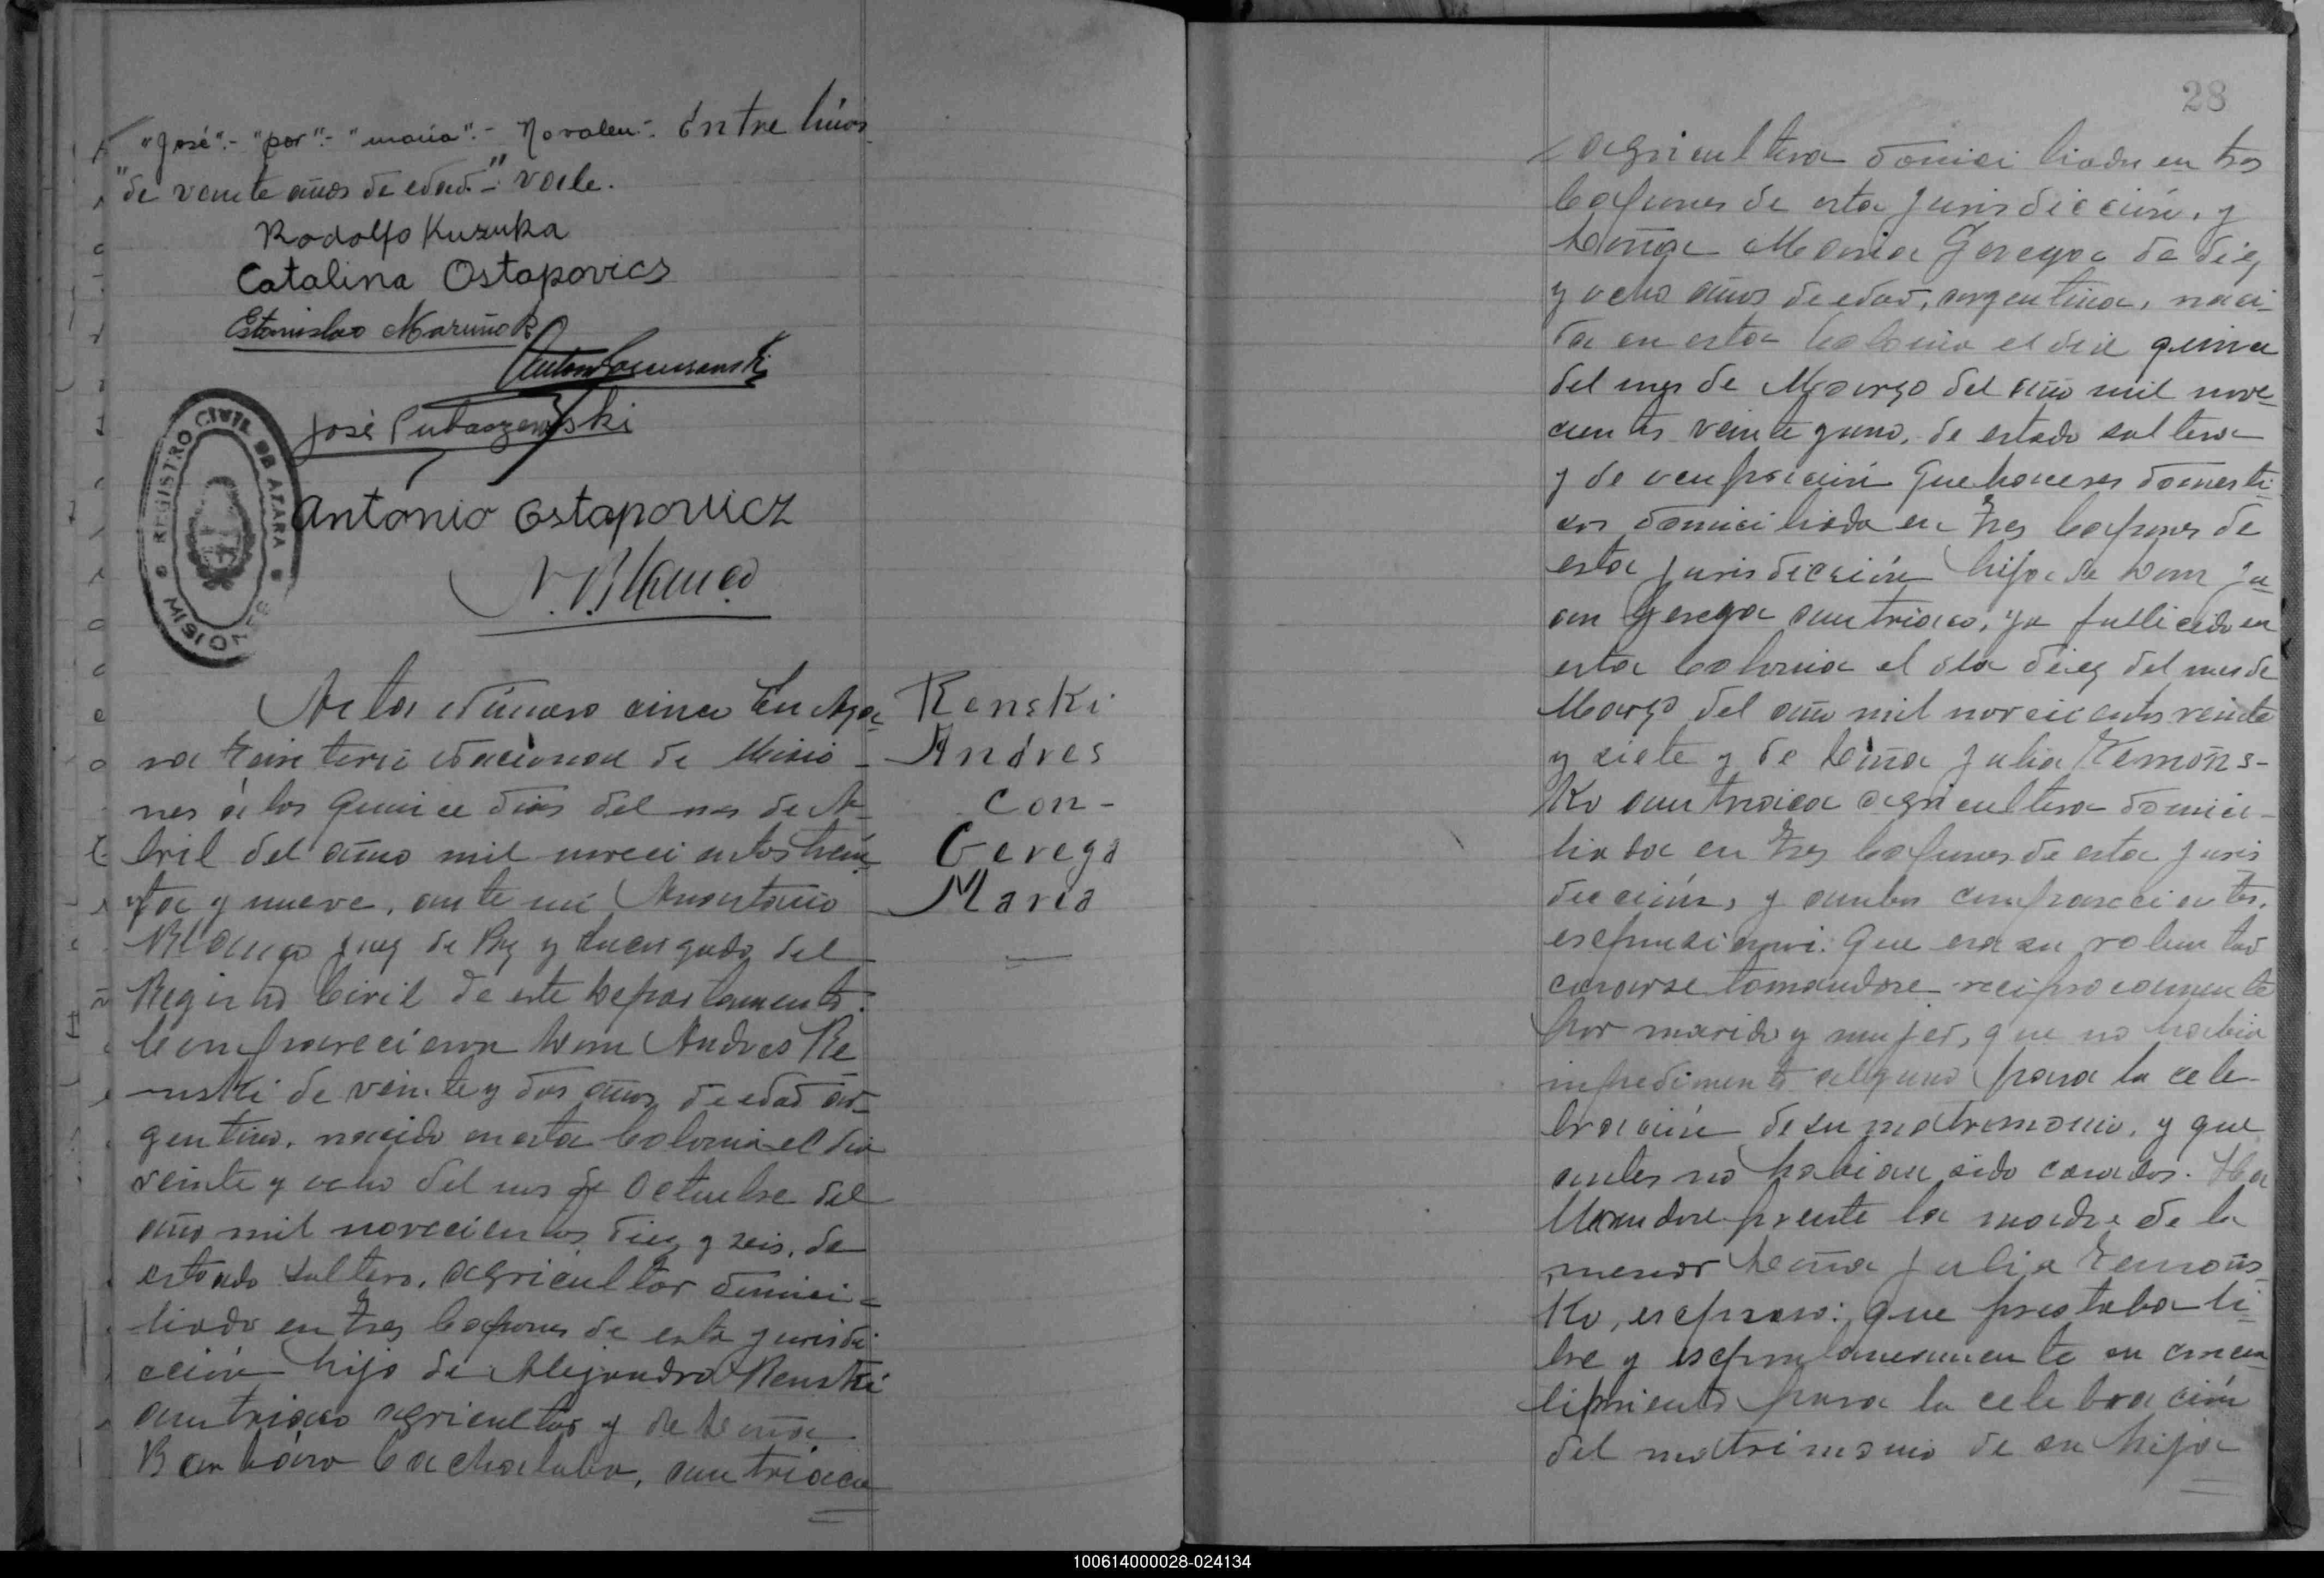 "José".- "por".- "maria".- No valen.- Entre lineas
"de veinte años de edad."- vale.
Rodolfo Kuzuka
Catalina Ostapovics
Estanislao Maruñak
José
Antonio Ostapovicz
N. Blanco
REGISTRO CIVIL DE AZARA
MISIONES
Acta número cinco En Aza-
ra Territorio Nacional de Misio-
nes á los quince dias del mes de A-
bril del año mil novecientos trein-
ta y nueve, ante mi
Blanco Juez de Paz y Encargado del
Registro Civil de este Departamento.
Comparecieron Don Andres Re-
nski de veinte y dos años de edad ar-
gentino, nacido en esta Colonia el dia
veinte y ocho del mes de Octubre del
año mil novecientos diez y seis, de
estado soltero, agricultor domici-
liado en Tres Capones de esta jurisdi-
cción hijo de Alejandro Renski
austriaco agricultor y de Doña
Barbara Cachaluba, austriaca
Renski
Andres
Con-
Gerega
Maria
28
agricultora domiciliada en tres
Capones de esta jurisdicción, y
Doña Maria Gerega de diez
y ocho años de edad, argentina, naci-
da en esta Colonia el dia quince
del mes de Marzo del año mil nove-
cientos veinte y uno, de estado soltera
y de ocupación quehaceres domesti-
cos domiciliada en Tres Capones de
esta jurisdicción hija de Don Ju-
an Gerega austriaco, ya fallecido en
esta Colonia el dia diez del mes de
Marzo del año mil novecientos veinte
y siete y de Doña Julia Temoñs-
Ko austriaca agricultora domici-
liada en Tres Capones de esta juris
dicción, y ambos comparecientes,
Que era su voluntad
casarse tomandose reciprocamente
por marido y mujer, que no habia
impedimento alguno para la cele-
bración de su matrimonio, y que
antes no habian sido casados. Ha
llandose prente la madre de la
menor Doña Julia Temoñs-
Ko, expreso: que prestaba li-
bre y espontaneamente su consen
timiento para la celebración
del matrimonio de su hija
100614000028-024134